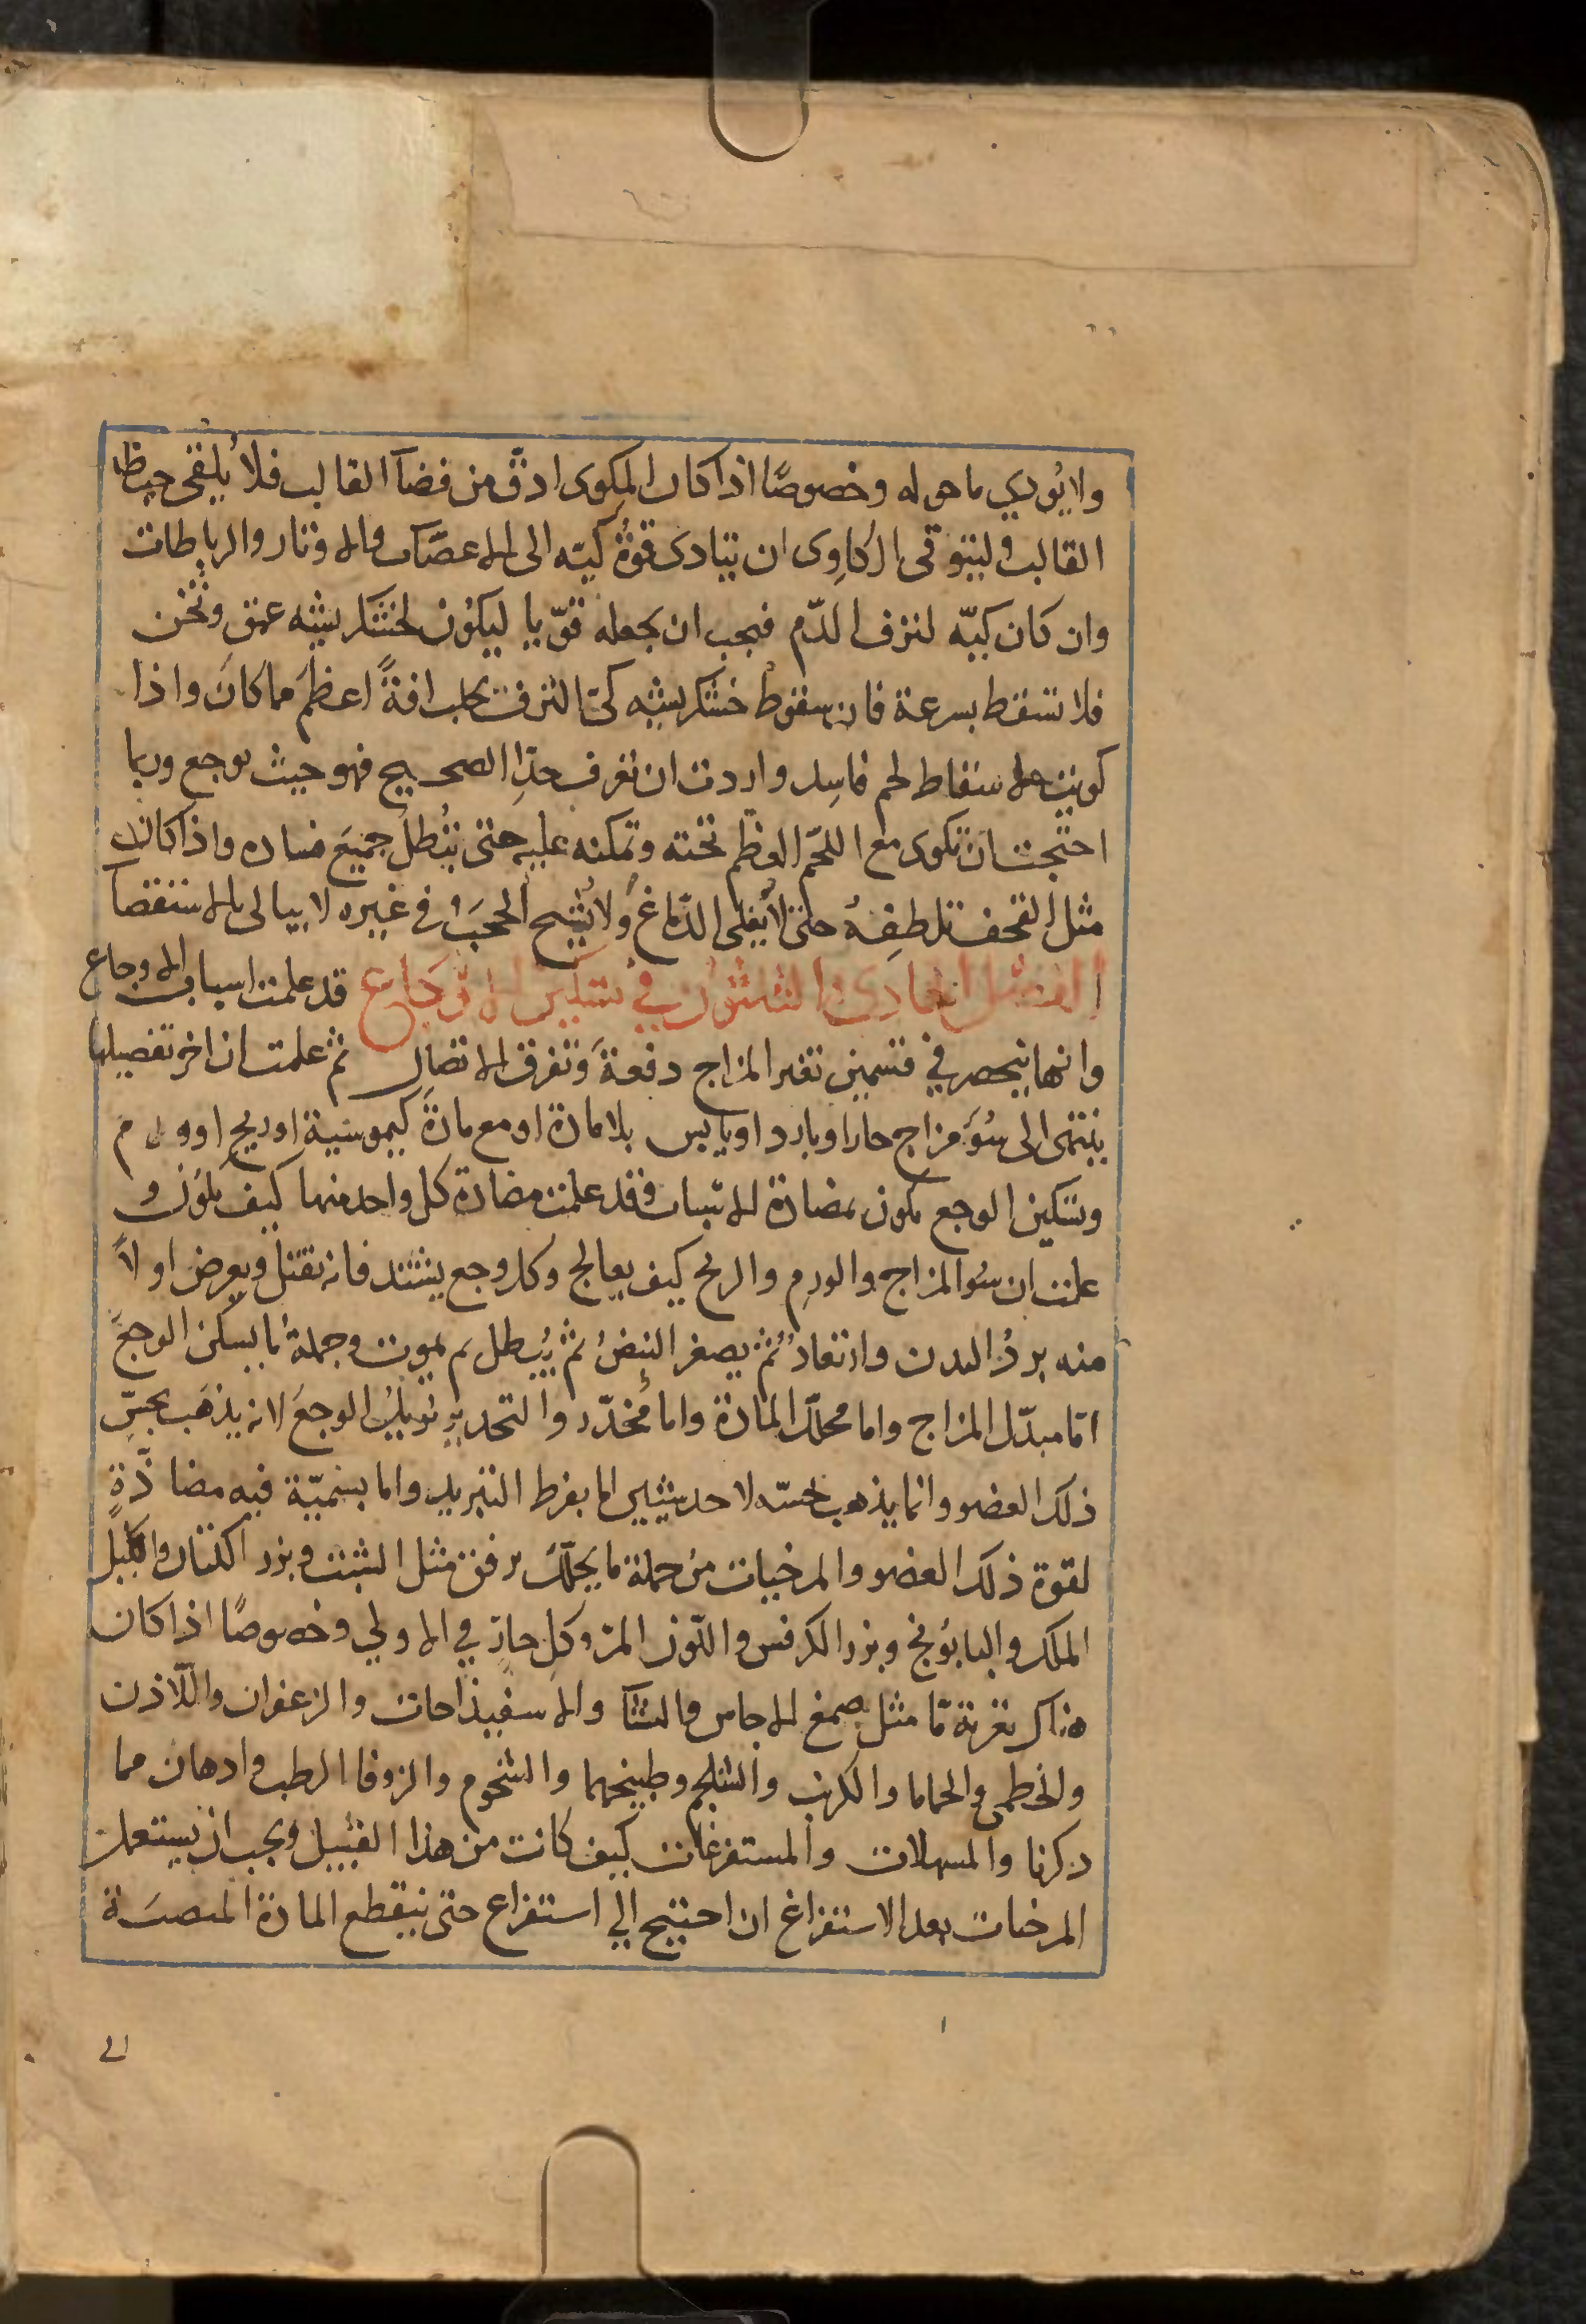 ولا يؤدي ما حوله وخصوصًا اذا كان المكوى ادقّ من فضآ القالب فلا يلقى حيطا
القالب وليتوقى الكاوى ان يتادى قوة كيته الى الاعصاب والاوتار والرباطات
وان كان كيّه لنزف الدّم فيجب ان يجعله قوّيا ليكون لخشكريشه عمق وثخن
فلا تسقط بسرعة فان سقوط خشكريشه كىّ النزف يجلب افةً اعظم مما كان واذا
كويت لاسقاط لحم فاسد واردت ان تعرف حدّ الصحيح فهو حيث يوجع وربما
احتجت ان تكوى مع اللحم العظم تحته وتمكنه عليه حتى تبطل جميع فساده واذا كان
مثل القحف تلطفه حتى لا يغلى الدماغ ولا تشيح الحجب وفى غيره لا يبالى بالاستقصآ
الفصل الحادى والثلثون في تسكين الاوجاع قد علمت اسباب الاوجاع
وانها ينحصر في قسمين تغير المزاج دفعة وتفرق الاتصال ثم علمت ان اخر تفصيلها
ينتهى الى سوء مزاج حار او بارد او يابس بلا مادة او مع مادة كيموسية او ريح او ورم
وتسكين الوجع يكون بمضادة الاسباب وقد علمت مضادة كل واحد منها كيف يكون و
علمت ان سوا المزاج والورم والريح كيف يعالج وكل وجع يشتد فانه يقتل ويعرض اولاً
منه برد البدن وارتعاد ثم يصغر النبض ثم يبطل ثم يموت وجملة ما يسكن الوجع
امّا مبدّل المزاج واما محلّل المادة واما مخدّر والتخدير يزيل الوجع لانه يذهب بحسّ
ذلك العضو وانما يذهب بحسّه لاحد شيئين اما بفرط التبريد واما بسميّة فيه مضادّة
لقوة ذلك العضو والمرخيات من جملة ما يحلّل برفق مثل الشبت وبزر الكتان واكليل
الملك والبابونج وبزر الكرفس واللوز المرّ وكل حارّ في الاولي وخصوصًا اذا كان
هناك تغرية مّا مثل صمغ الاجاص والنشآ والاسفيذاجات والزعفران واللّاذن
والخطمى والحماما والكرنب والشلجم وطبيخهما والشحوم والزوفا الرطب وادهان مما
ذكرنا والمسهلات والمستفرغات كيف كانت من هذا القبيل ويجب ان يستعمل
المرخيات بعد الاستفراغ ان احتيج الي استفراغ حتى ينقطع المادة المنصبّة
الى